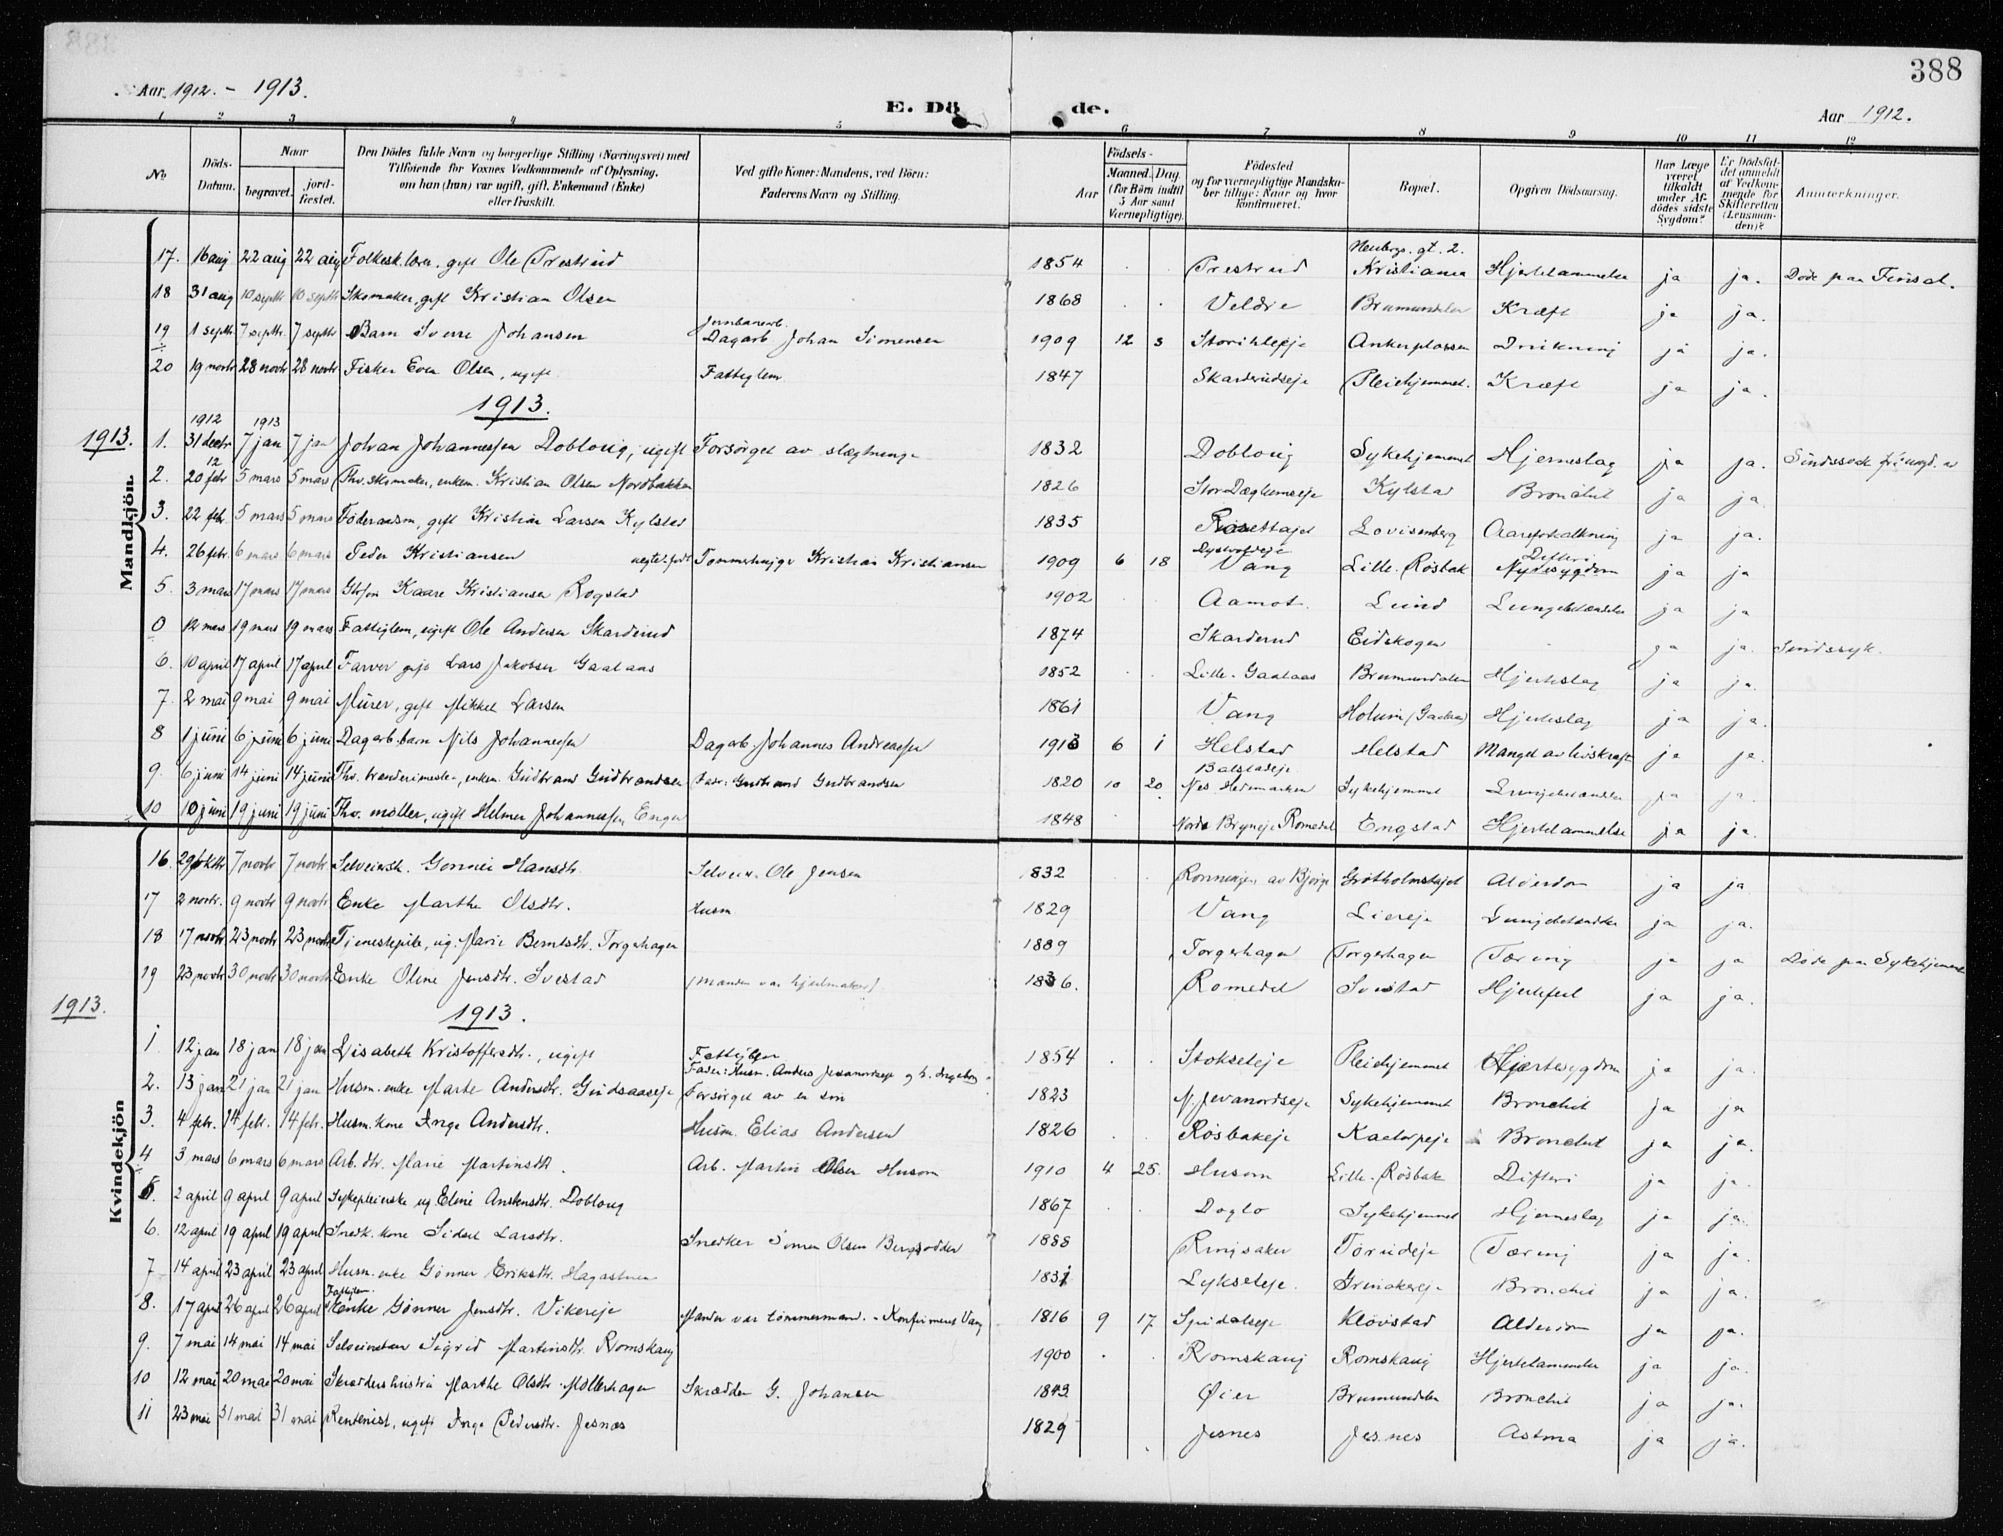 388
Aar 1912. – 1913.
E. Dö de.
Aar 1912.
1 2 3 4 5 6 7 8 9 10 11 12
No
Döds-Datum.
Naar begravet. jordfæstet.
Den Dödes fulde Navn og borgerlige Stilling (Næringsvei) med Tilföiende for Voxnes Vedkommende af Oplysning, om han (hun) var ugift, gift, Enkemand (Enke) eller fraskilt.
Ved gifte Koner: Mandens, ved Börn: Faderens Navn og Stilling.
Födsels- Aar Maaned. Dag. (for Börn indtil 5 Aar samt Værnepligtige).
Födested og for værnepligtige Mandskaber tillige: Naar og hvor konfirmeret.
Bopæl.
Opgiven Dödsaarsag.
Har Læge været tilkaldt under Afdödes sidste Sygdom?
Er Dödsfaldet anmeldt af Vedkommende for Skifteretten (Lensmanden)?
Anmerkninger.
Mandkjön.
17. 16 aug 22 aug 22 aug Folkesk.lærer. gift Ole Prestrud 1854 Prestrud Kristiania Hjertelammelse ja ja. Döde paa Finsal.
18 31 aug 10 septbr 10 septbr Skomaker, gift Kristian Olsen 1868 Veldre Brumunddalen Kræft ja ja.
19 1 septbr 7 septbr. 7 septbr Barn Sverre Johansen Jernbanearb. Dagarb Johan Simensen 1909 12 3 Ankerplassen Drukning ja ja.
20 19 novbr 28 novbr 28 novbr Fisker Even Olsen, ugift Fattiglem 1847 Skarderudseje Pleiehjemmet. Kræft ja ja.
1913.
1912 1913
1913. 1. 31 decbr 7 jan 7 jan Johan Johannessen Doblong, ugift Forsörget av slægtninge 1832 Doblong Sykehjemmet Hjerneslag ja ja.
2. 20 febr 5 mars 5 mars Fhv. skomaker, enkem. Kristian Olsen Nordbakken 1826 Kylstad Bronchit ja ja
3. 22 febr. 5 mars 5 mars Föderaadsm, gift Kristian Larsen Kylstad 1835 Lovisenberg Aareforkalkning ja ja.
4. 26 febr. 6 mars 6 mars Peder Kristiansen Tömmerhugger Kristian Kristiansen 1909 6 18 Vang Lille. Rösbak Difteri Nyresygdom ja ja
5. 3 mars 17 mars 17 mars Kaare Kristiansen Rogstad 1902 Aamot. Lund Lungebetændelse ja ja
0 12 mars 19 mars 19 mars Fattiglem, ugift Ole Andersen Skarderud 1874 Skarderud Eidskogen ja ja. Sindssyk.
6. 10 april 17 april 17 april Farver gift Lars Jakobsen Gaalaas 1852 Lille. Gaalaas Brumunddalen Hjerteslag ja ja.
7. 2 mai 9 mai 9 mai Murer, gift Mikkel Larsen 1861 Vang Holum Hjerteslag ja ja.
8 1 juni 6 juni 6 juni Dagarb. barn Nils Johannessen Dagarb. Johannes Andreassen 1913 6 1 Helstad Helstad Mangel av livskraft ja ja.
9. 6 juni 14 juni 14 juni Fhv. brænderimester, enkem. Gudbrand Gudbrandsen Fader: Gudbrand Gudbrandsen 1820 10 20 Nes Hedemarken Sykehjemmet Lungebetændelse ja ja.
10 10 juni 19 juni 19 juni Fhv. möller, ugift Helmer Johannessen Enger 1848 Romedal Engstad Hjertelammelse ja ja.
Kvindekjön
16. 29 oktbr 7 novbr 7 novbr Gonner Hansdtr. Selveier. Ole Jensen 832 Alderdom ja ja
17 2 novbr. 9 novbr 9 novbr Enke Marthe Olsdtr. Husm 1829 Vang Liereje Lungebetændelse ja ja.
18 17 novbr 23 novbr 23 novbr Tjenestepike, ug. Marie Berntsdtr. Torgerhagen 1889 Torgerhagen Torgerhagen Tæring ja ja Döde paa Sykehjemmet
19 23 novbr 30 novbr 30 novbr Enke Oline Jensdtr. Svestad (Manden var hjulmaker). 1836. Romedal Svestad Hjertefeil ja ja.
1913. 1913.
1 12 jan 18 jan 18 jan Lisabeth Kristoffersdtr., ugift Fattiglem 1854 Stokseteje Pleiehjemmet Hjertesygdom ja ja.
2. 13 jan 21 jan 21 jan Husm. enke Marte Andersdtr. Gudsaaseje Forsörget av en sön 1823 N. Jevanordseje Sykehjemmet Bronchit ja ja
3. 4 febr. 14 febr. 14 febr. Husm. kone Inge Andersdtr. Husm. Elias Andersen 1826 Rösbakeje Bronchit ja ja.
4 3 mars 6 mars 6 mars Arb. dtr. Marie Martinsdtr. Arb. Martin Olsen Husom 1910 4 25. Husom Lille. Rösbak Difteri ja ja.
5. 2 april 9 april 9 april Sykepleierske ug Eline Doblong 1867 Doglo Sykehjemmet Hjerneslag ja ja.
6. 12 april 19 april 19 april Snedk. kone Sidsel Larsdtr. Snedker Simen Olsen 1888 Ringsaker Törudeje Tæring ja ja.
7 14 april 23 april 23 april Husm. enke Gönner Eriksdtr. Hagastuen 1831 Lykseteje. Bronchit ja ja.
8. 17 april 26 april 26 april Fattiglem. Enke Gönner Jensdtr. Vikereje Manden var tömmermand. – Konfirmeret Vang 1816 9 17. Spidalseje Klövstad Alderdom ja ja.
9. 7 mai 14 mai 14 mai Sigrid Martinsdtr. Romskaug 1900 Romskaug Romskaug Hjertelammelse ja ja.
10 12 mai 20 mai 20 mai Marthe Olsdtr. Möllerhagen Skrædder G. Johansen 1843 Öier Brumunddalen Bronchit ja ja.
11 23 mai 31 mai 31 mai Rentenist, ugift Inge Pedersdtr. Jesnæs 1829 Jesnes Jesnes Astma ja ja.